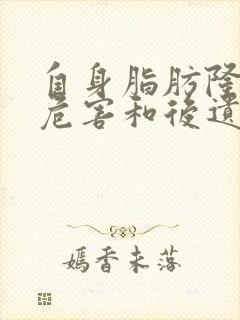 自身脂肪隆
危害和後遺
嫣香未落